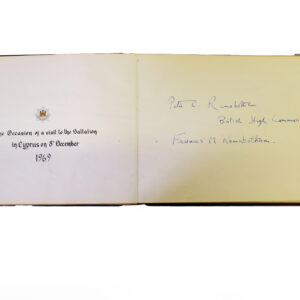 he Occasion of a visit to the Battalion
in Cyprus on 8th December
1969
Peter E. Ramsbotham
British High Commis
Frances M Ramsbotham.